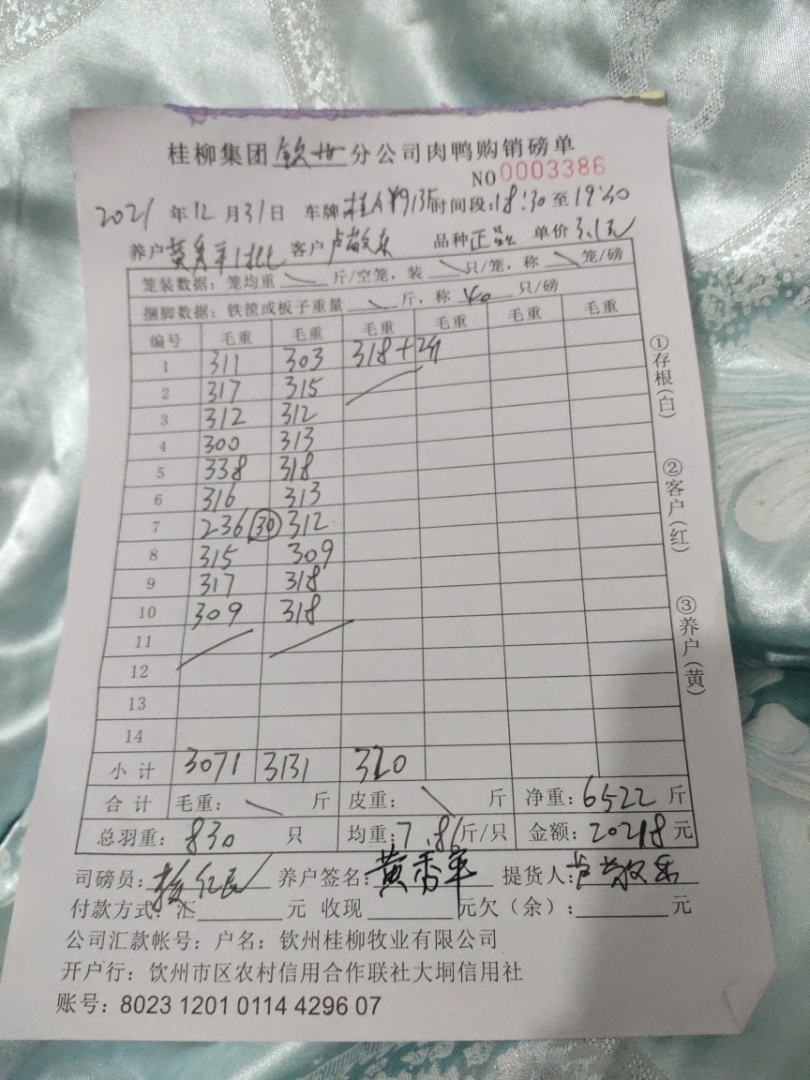 桂柳集团 钦州 分公司肉鸭购销磅单
NO 0003386
2021 年 12 月 31 日 车牌 桂A 时间段:18:30 至 19:30
养户 黄秀军 客户 卢敬东 品种 正品 单价 3.1元
笼装数据:笼均重 \ 斤/空笼,装 \ 只/笼,称 \ 笼/磅
捆脚数据:铁筐或板子重量 \ 斤,称 40 只/磅
编号 毛重 毛重 毛重 毛重 毛重 毛重
1 311 303 318+2
2 317 315
3 312 312
4 300 313
5 338 318
6 316 313
7 236 30 312
8 315 309
9 317 318
10 309 318
11
12
13
14
小计 3071 3131 320
合计 毛重: \ 斤 皮重: \ 斤 净重: 6522 斤
总羽重: 830 只 均重: 7.86 斤/只 金额: 20218 元
司磅员: 养户签名: 黄秀军 提货人: 卢敬东
付款方式:汇 元 收现 元欠(余): 元
公司汇款帐号:户名:钦州桂柳牧业有限公司
开户行:钦州市区农村信用合作联社大垌信用社
账号:8023 1201 0114 4296 07
①存根(白)
②客户(红)
③养户(黄)